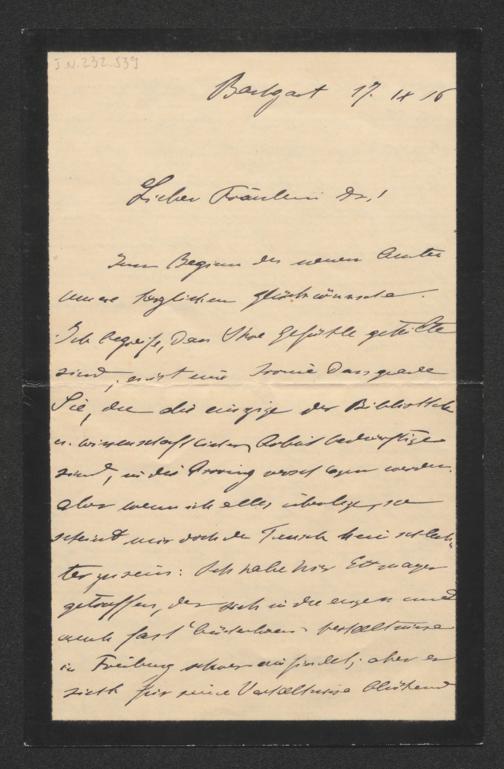 J.N. 232.539
17. IX 16
Lieber Fräulein Dr.!
Zum Beginn des neuen Amtes
unsere herzlichen Glückwünsche.
Ich begreife, dass Ihre Gefühle geteilte
sind, ist eine Ironie dass gerade
Sie, die die einzige der Bibliothek
u. wissenschaftlicher Arbeit bedürftige
sind, in die Provinz verschlagen werden.
Aber wenn ich alles überlege, so
scheint mir doch der Tausch kein schlech-
ter zu sein: Ich habe hier Ettmayer
getroffen, der sich in die engen und
auch fast Verhältnisse
in Freiburg schwer einfindet; aber er
sieht für seine Verhältnisse blühend